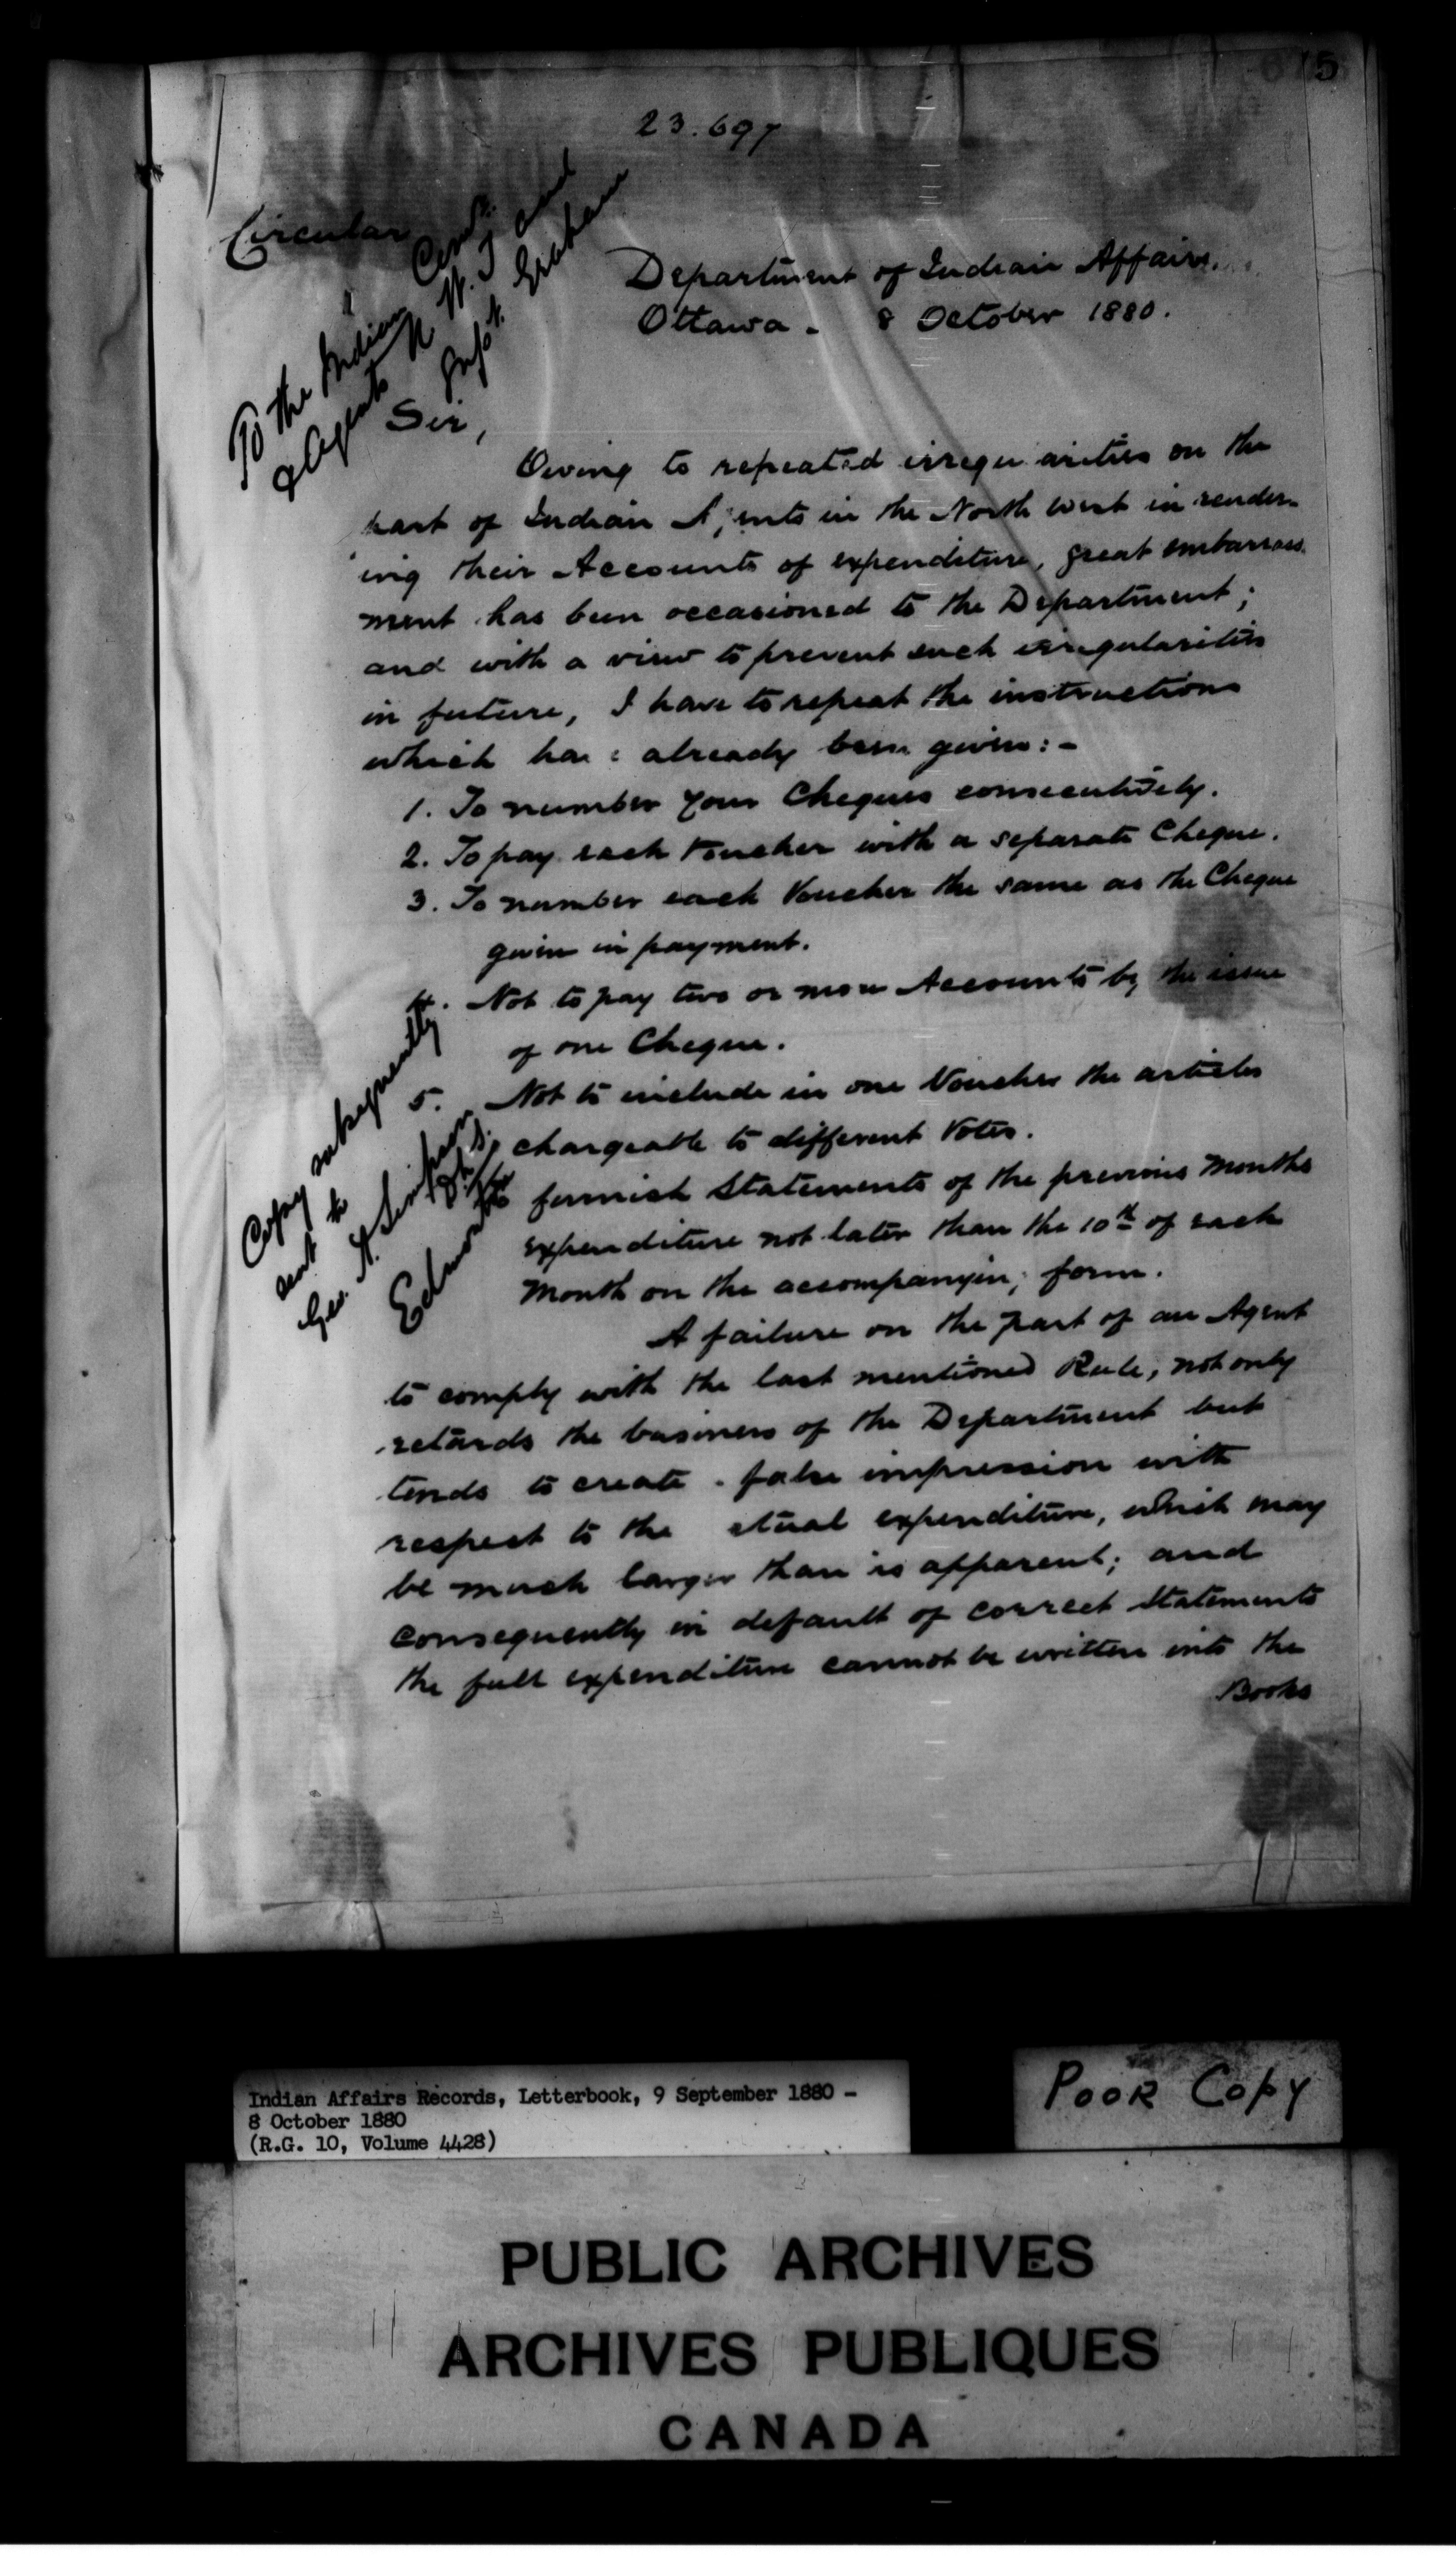 5
23.697
Circular
To the Indian Comr.
& Agents N. W. T and
Inspt. Graham
Department of Indian Affairs.
Ottawa. 8 October 1880.
Sir,
Owing to repeated irregularities on the
part of Indian Agents in the North West in render-
ing their Accounts of expenditure, great embarrass-
ment has been occasioned to the Department;
and with a view to prevent such irregularities
in future, I have to repeat the instructions
which have already been given:-
1. To number your Cheques consecutively.
2. To pay each Voucher with a separate Cheque.
3. To number each Voucher the same as the Cheque
given in payment.
4. Not to pay two or more Accounts by the issue
of one Cheque.
5. Not to include in one Voucher the articles
chargeable to different Votes.
To furnish Statements of the previous months
expenditure not later than the 10th of each
month on the accompanying form.
Copy subsequently
sent to
Geo. A. Simpson
A failure on the part of an Agent
to comply with the last mentioned Rule, not only
retards the business of the Department but
tends to create a false impression with
respect to the actual expenditure, which may
be much larger than is apparent; and
consequently in default of correct Statements
the full expenditure cannot be written into the
Books
Indian Affairs Records, Letterbook, 9 September 1880 -
8 October 1880
(R.G. 10, Volume 4428)
POOR COPY
PUBLIC ARCHIVES
ARCHIVES PUBLIQUES
CANADA